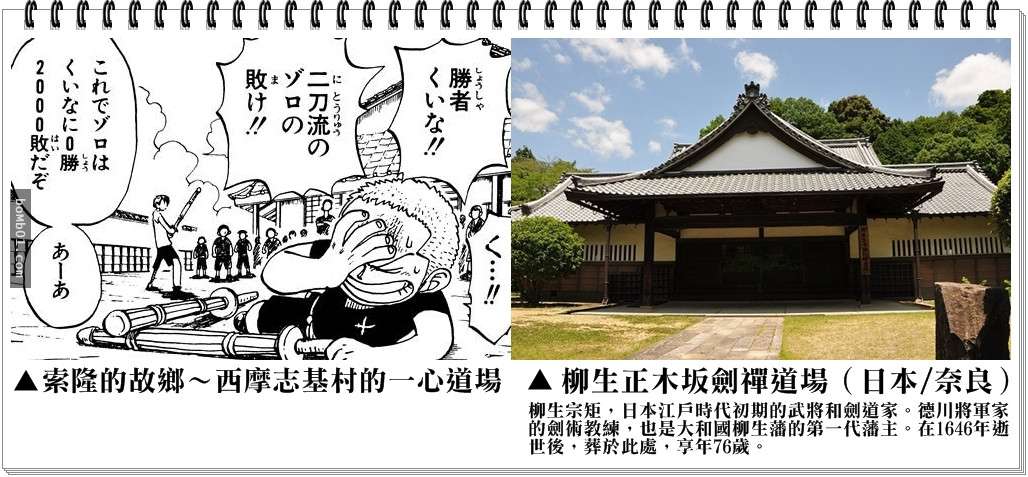 勝者
くいな!!
しょうしゃ
二刀流の
にとうりゅう
ゾロの
敗け!!
ま
これでゾロは
くいなに0勝
しょう
2000敗だぞ
はい
あーあ
く…!!
bomb01.com
▲索隆的故鄉～西摩志基村的一心道場
▲柳生正木坂劍禪道場（日本/奈良）
柳生宗矩，日本江戶時代初期的武將和劍道家。德川將軍家
的劍術教練，也是大和國柳生藩的第一代藩主。在1646年逝
世後，葬於此處，享年76歲。